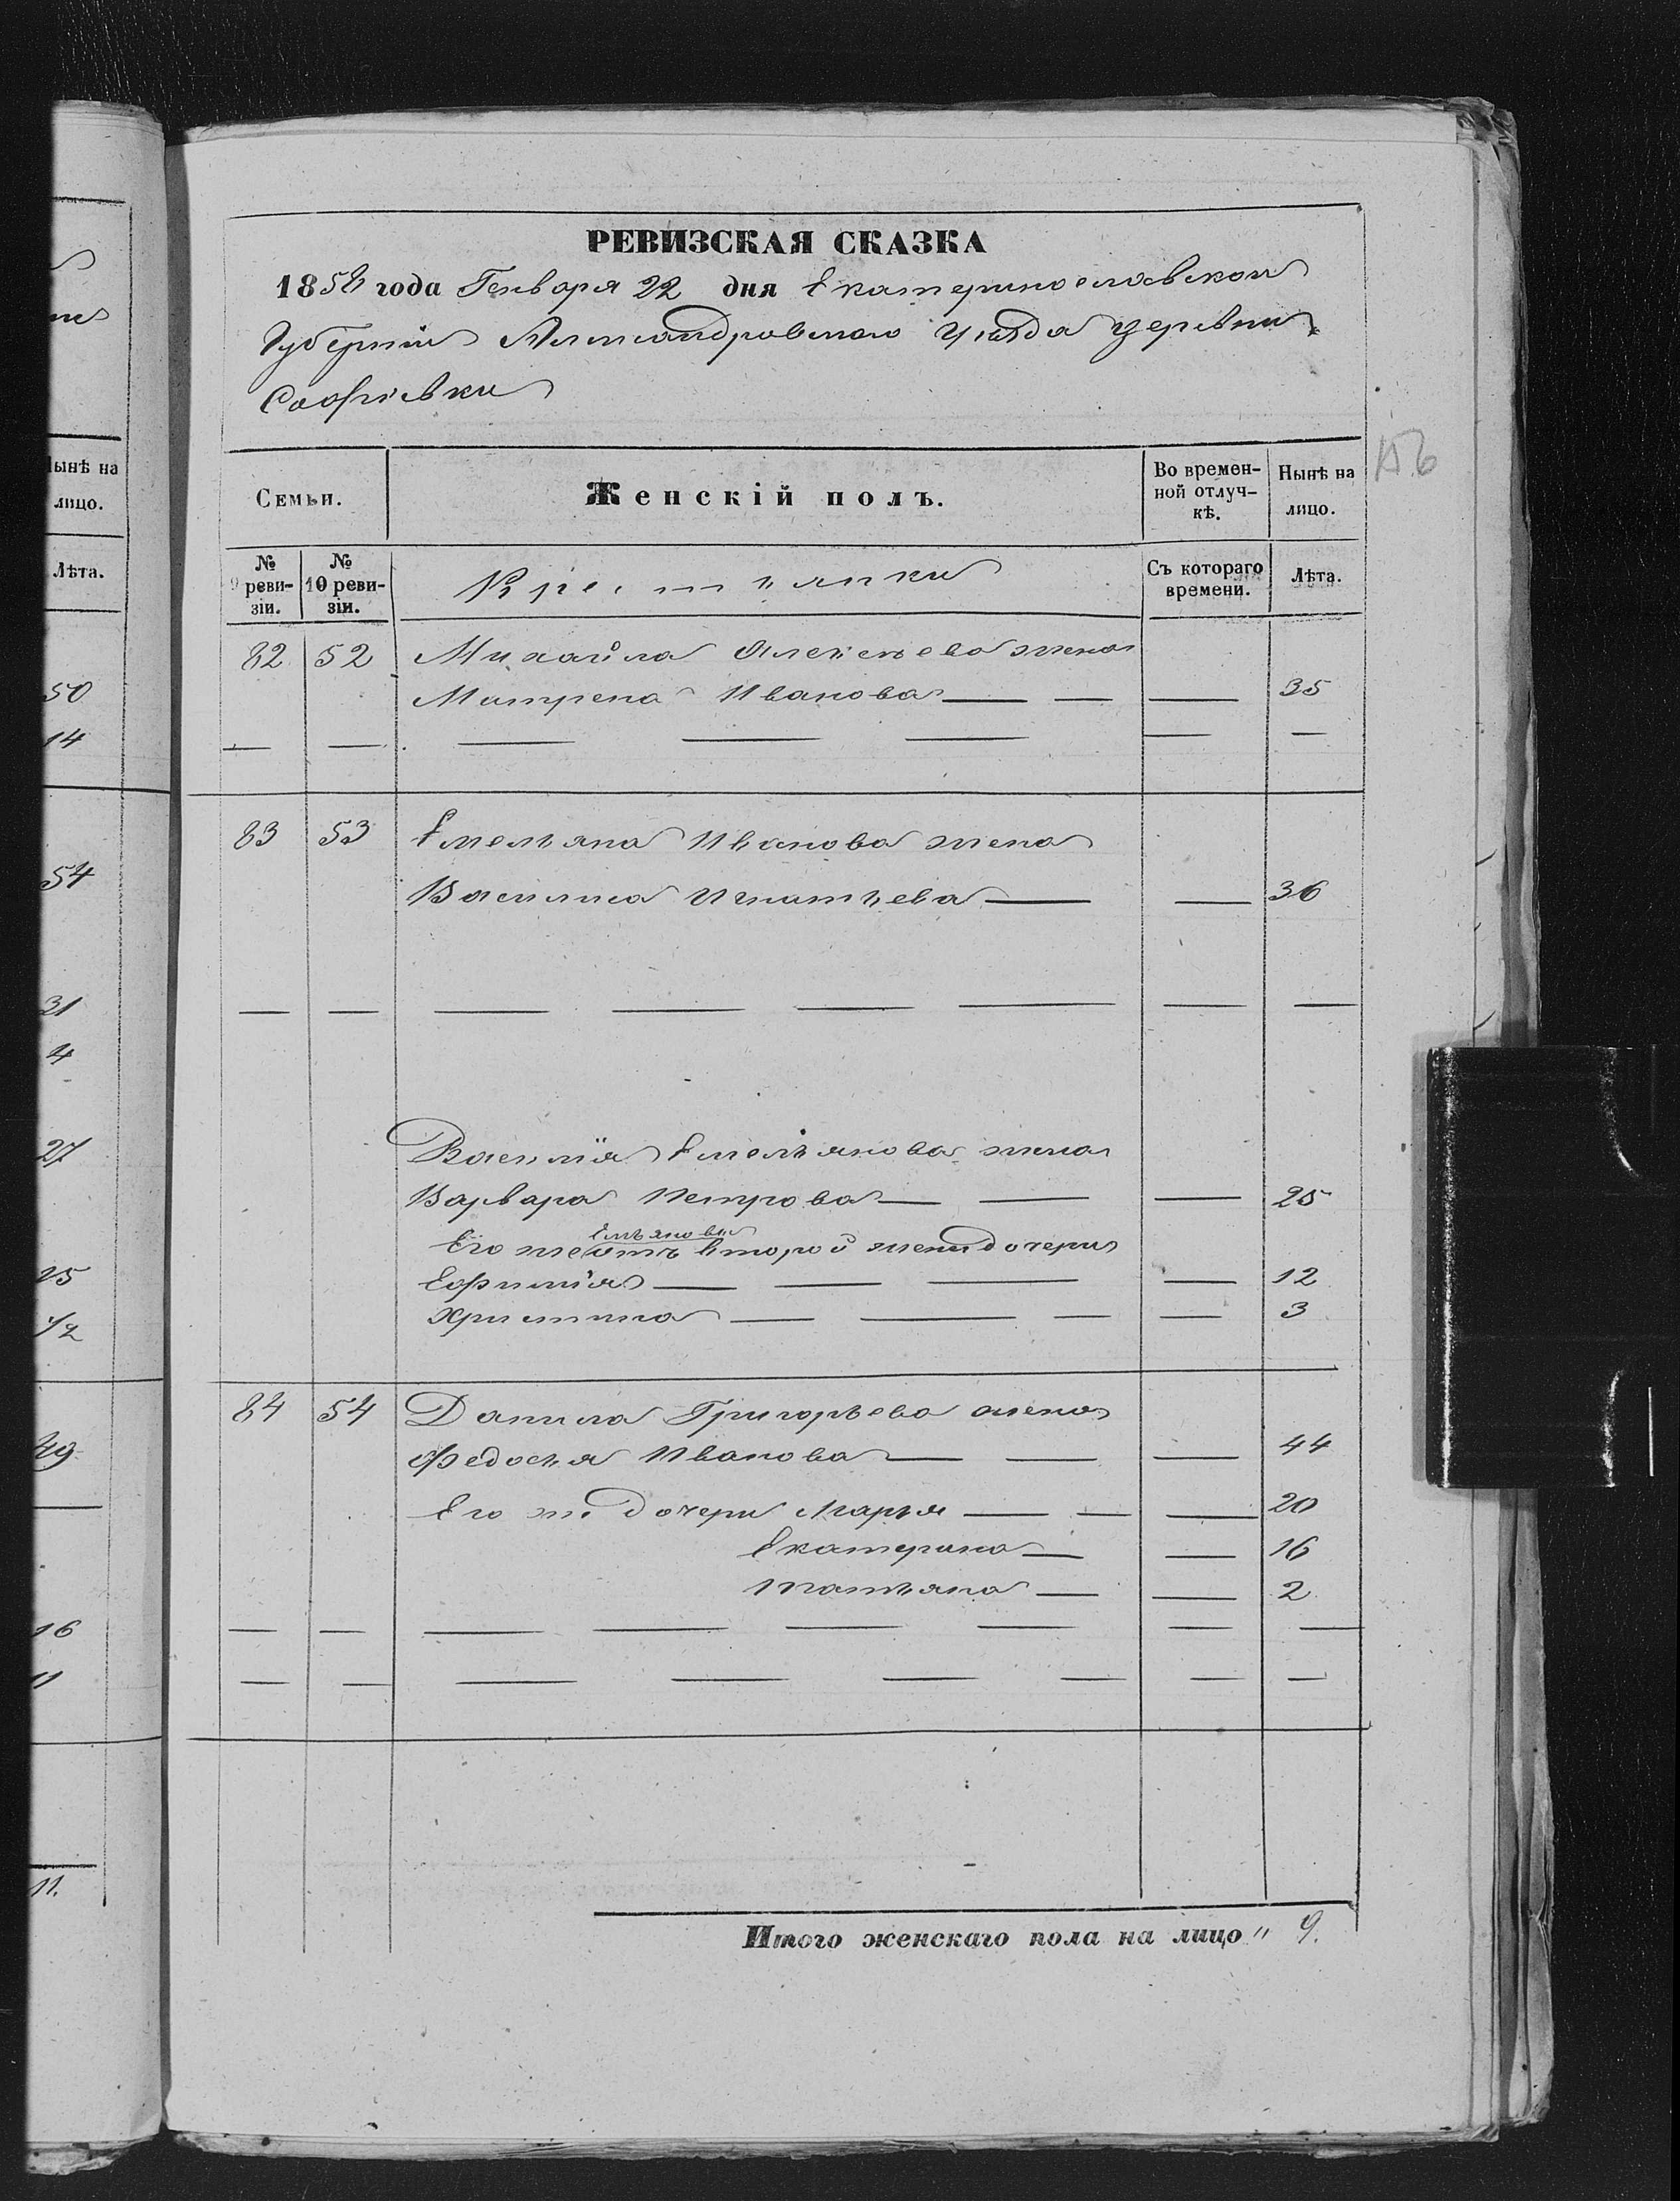 РЕВИЗСКАЯ СКАЗКА
1858 года Генваря 22 дня Екатеринославской
Губерніи Александровскаго уѣзда деревни
Софіевки
156
Семьи. Женскій полъ. Во времен-ной отлуч-кѣ. Нынѣ на лицо.
№ 9 реви-зіи. № 10 реви-зіи. Крестьянки Съ котораго времени. Лѣта.
82 52 Михайла Алексѣева жена
Матрена Иванова — — — 35
83 53 Емельяна Иванова жена
Василиса Игнатьева — — 36
Василія Емельянова жена
Варвара Петрова — — — 25
Емельяновы
Его же отъ второй жены дочери
Ефимія — — — — 12
Христина — — — — 3
84 54 Данила Григорьева жена
Федосья Иванова — — — 44
Его же дочери Марья — — — 20
Екатерина — — 16
Татьяна — — 2
Итого женскаго пола на лицо " 9.
ынѣ на
лицо.
Лѣта.
50
14
54
31
4
27
25
1/2
49
16
11
11.